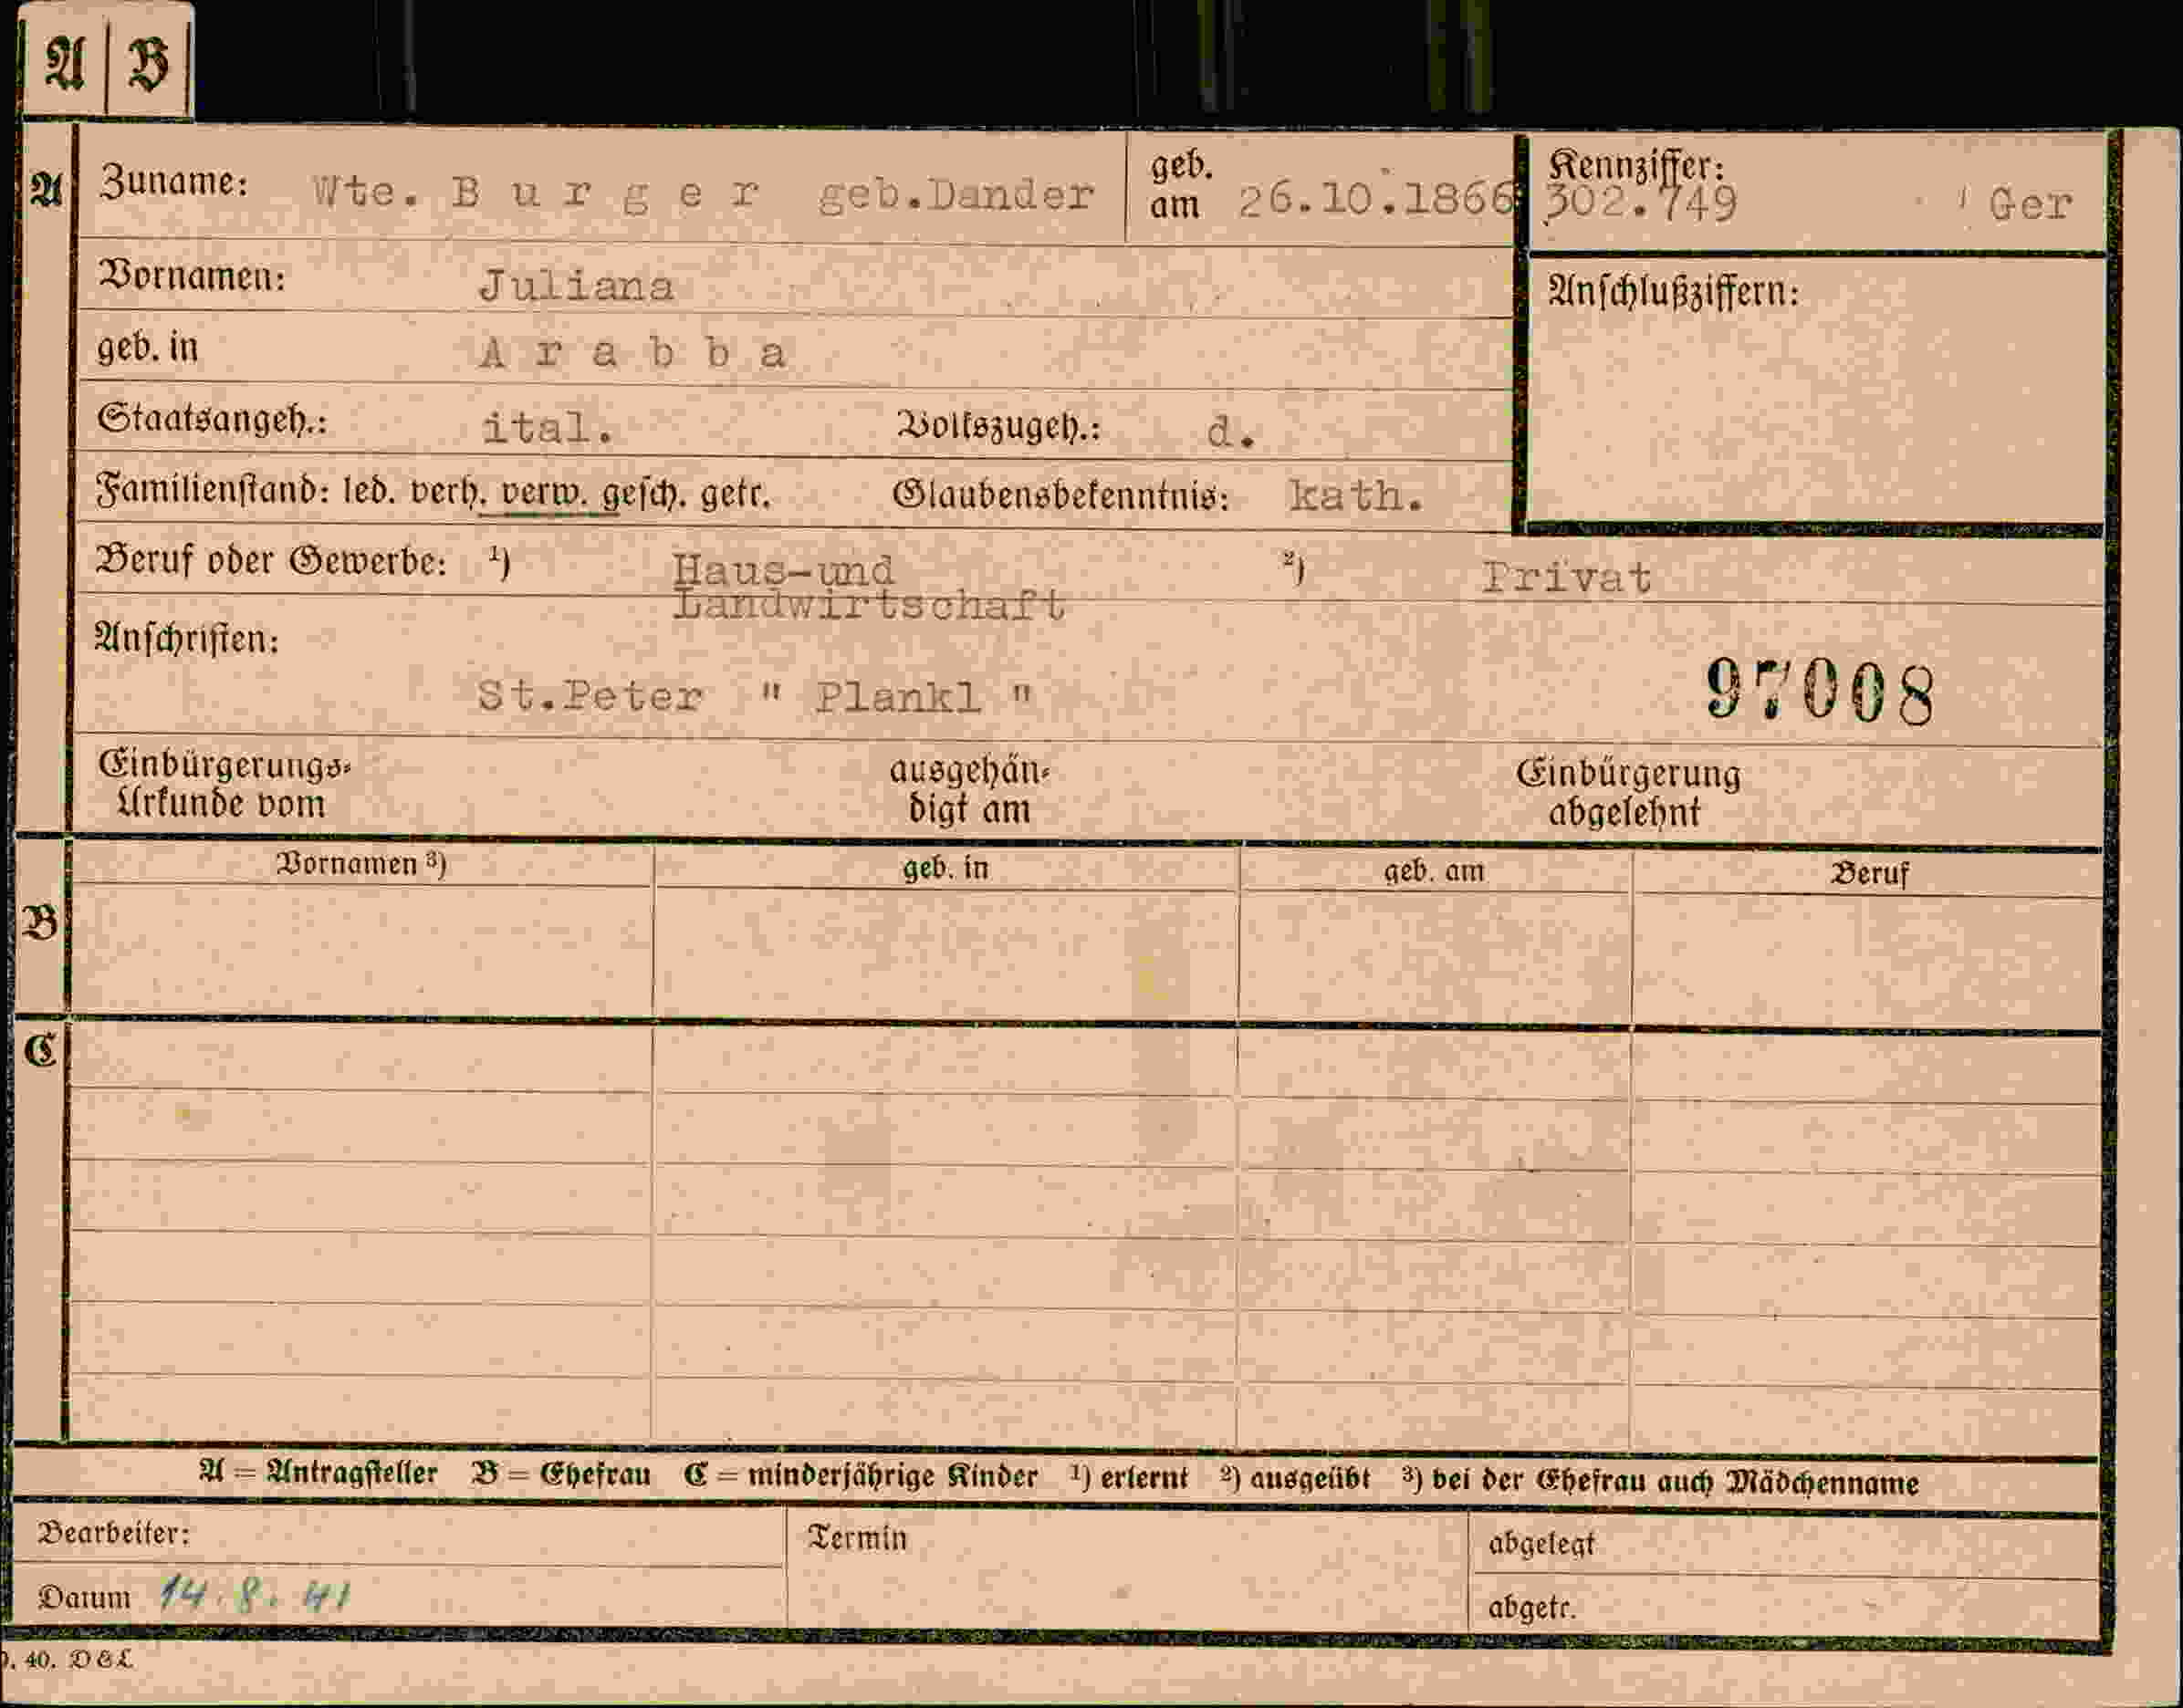 A B
A Zuname: Wte. B u r g e r geb.Dander geb. am 26.10.1866 Kennziffer: 302.749 Ger
Vornamen: Juliana Anschlußziffern:
geb. in A r a b b a
Staatsangeh.: ital. Volkszugeh.: d.
Familienstand: led. verh. verw. gesch. getr. Glaubensbekenntnis: kath.
Beruf oder Gewerbe: ¹) Haus-und ²) Privat
Landwirtschaft
Anschriften:
St.Peter " Plankl " 97008
Einbürgerungs- ausgehän- Einbürgerung
Urkunde vom digt am abgelehnt
Vornamen ³) geb. in geb. am Beruf
B
C
A = Antragsteller B = Ehefrau C = minderjährige Kinder ¹) erlernt ²) ausgeübt ³) bei der Ehefrau auch Mädchenname
Bearbeiter: Termin abgelegt
Datum 14. 8. 41 abgetr.
40. D&L